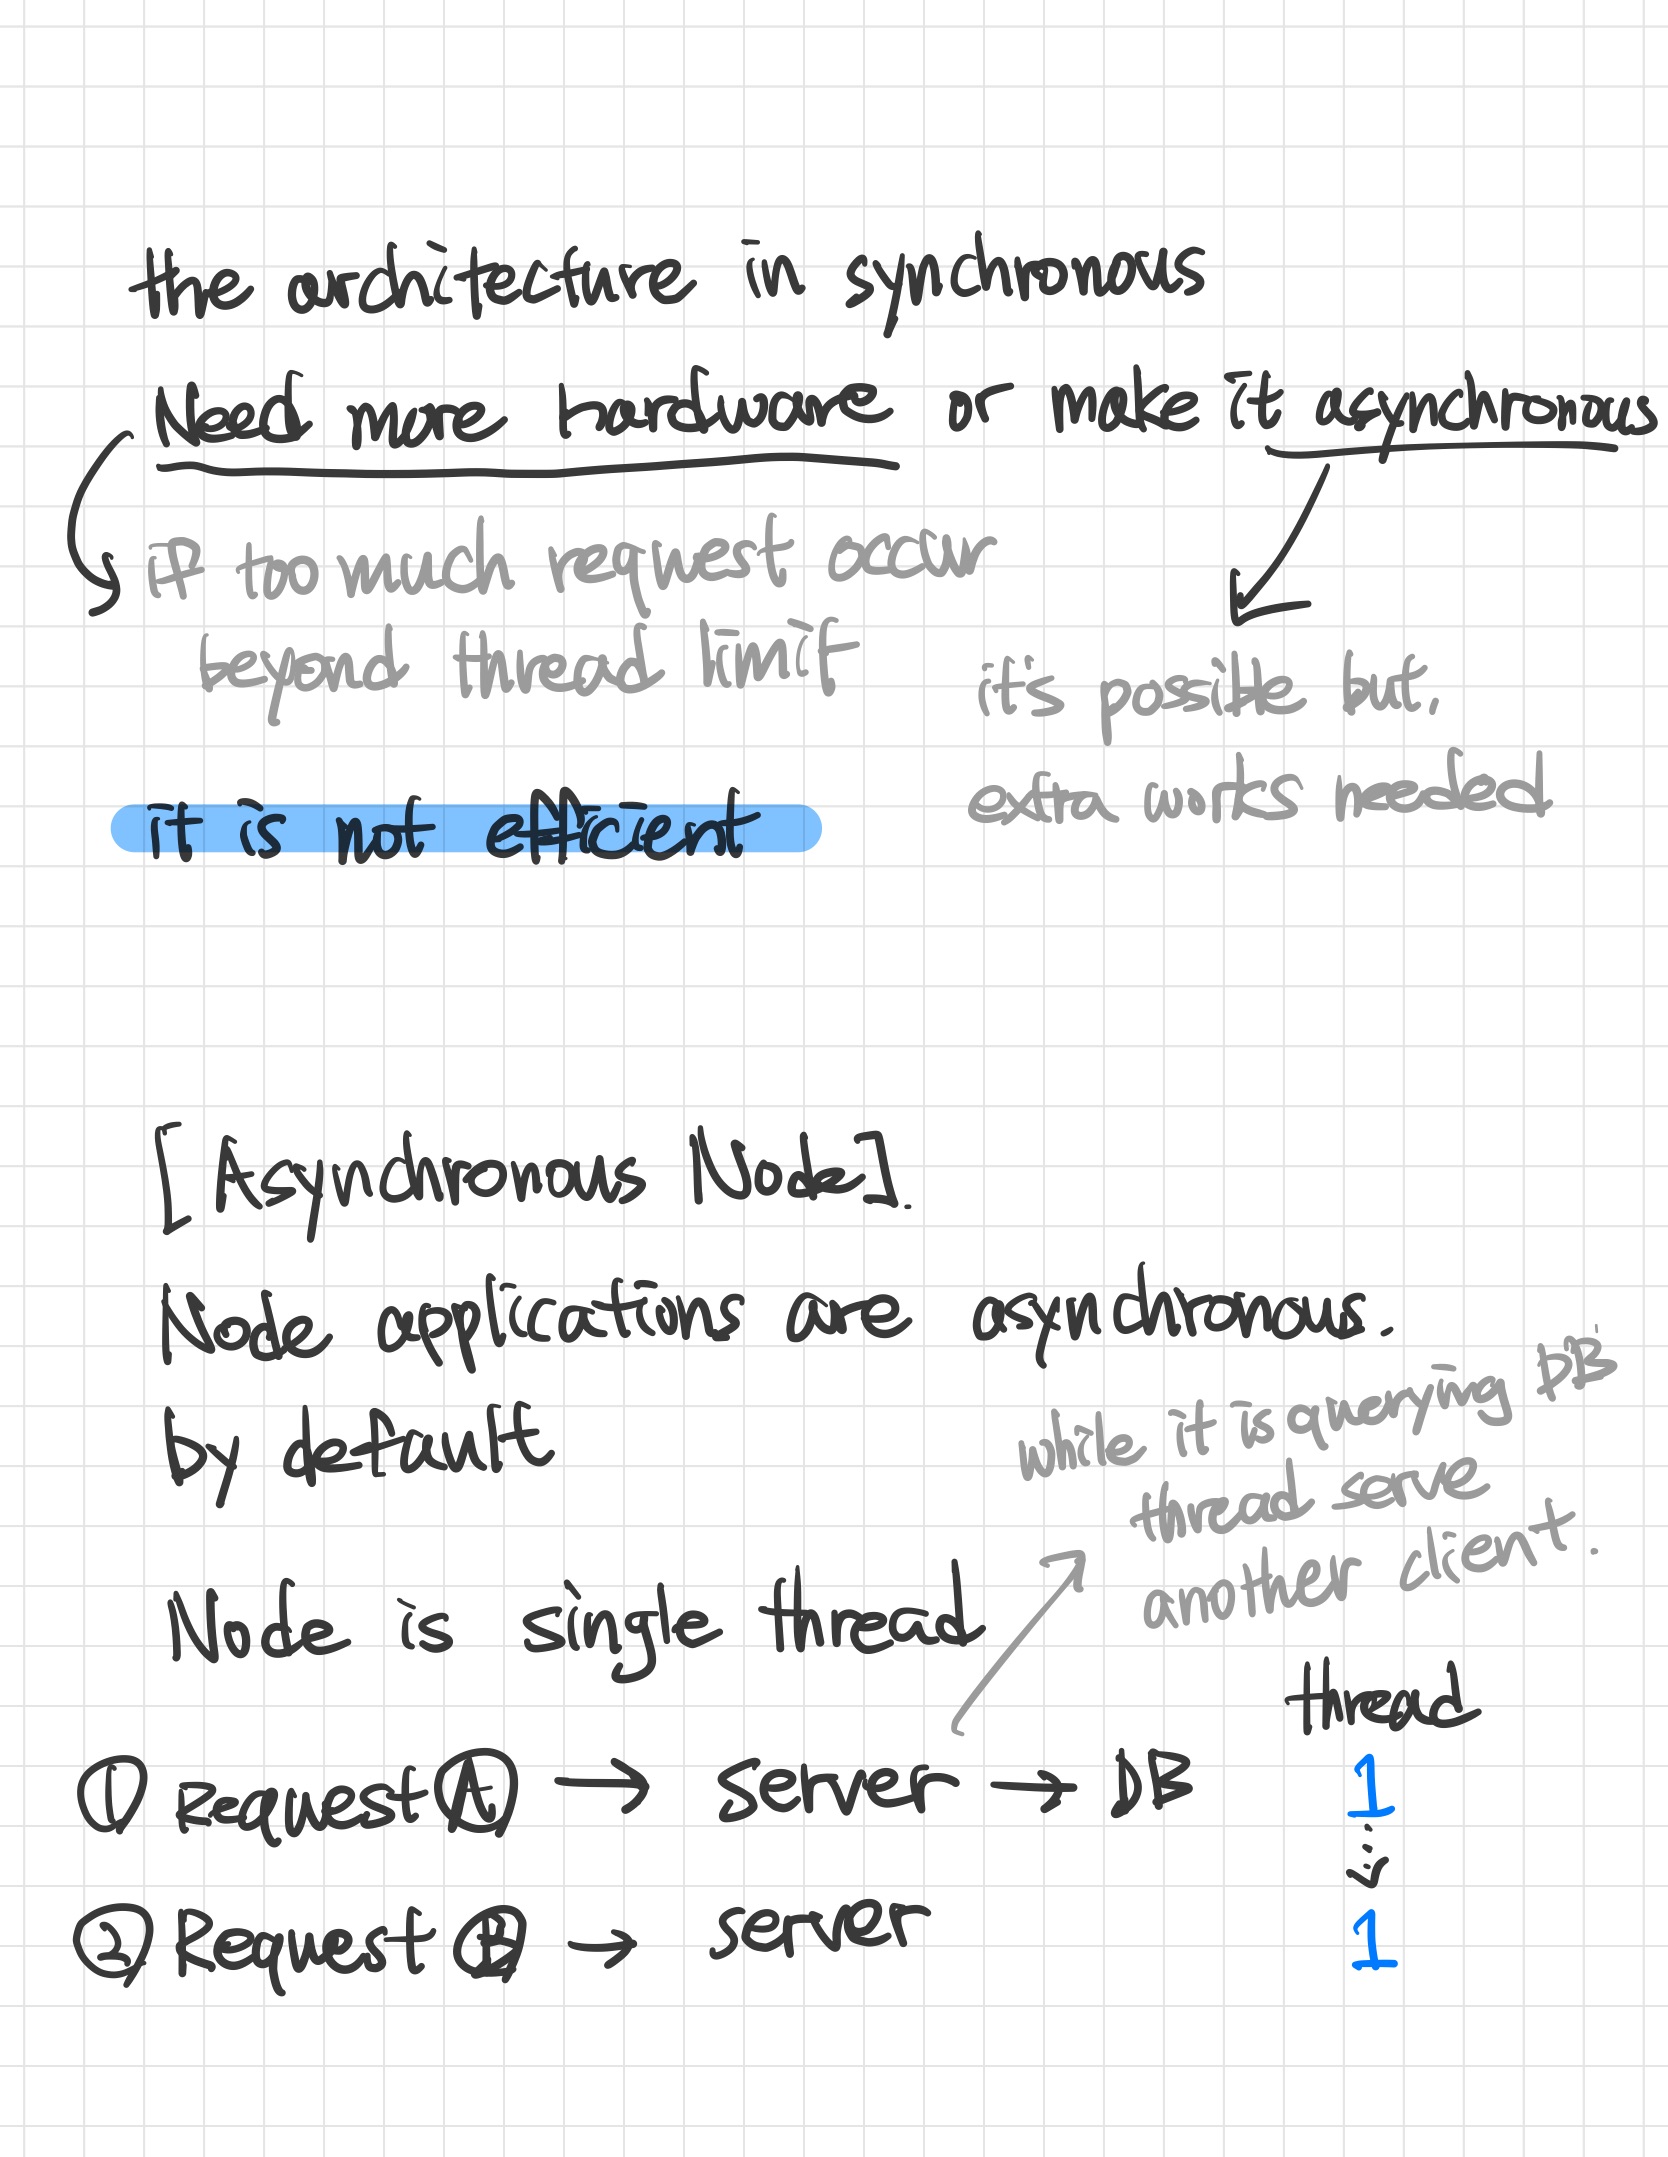 the architecture in synchronous
Need more hardware or make it asynchronous
if too much request occur
beyond thread limit
it's possible but,
extra works needed
it is not efficient
[Asynchronous Node].
Node applications are asynchronous.
by default
while it is querying DB
thread serve
another client.
Node is single thread
thread
① Request Ⓐ → server → DB 1
② Request Ⓑ → server 1